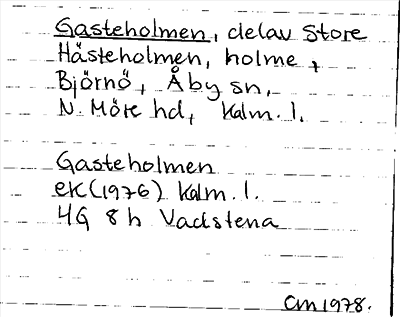 Gasteholmen, delav Store
Hästeholmen, holme,
Björnö, Åby sn,
N. Möre hd, Kalm. l.
Gasteholmen
ek (1976) Kalm. l.
4G 8h Vadstena
CM 1978.